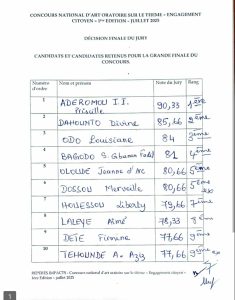 CONCOURS NATIONAL D'ART ORATOIRE SUR LE THEME « ENGAGEMENT
CITOYEN » 1ère EDITION - JUILLET 2025
DÉCISION FINALE DU JURY
CANDIDATS ET CANDIDATES RETENUS POUR LA GRANDE FINALE DU
CONCOURS.
Numéro d'ordre Nom et prénom Note du Jury Rang
1 ADEROMOU I. I. Priscille 90,33 1ère
2 DAHOUNTO Divine 85,66 2ème
3 ODO Louisiane 84 3ème
4 BAGODO S. Fadel 81 4ème
5 OLOUDE Joanne d'Arc 80,66 5ème
6 DOSSOU Merveille 80,66 5ème
7 HOUESSOU Liberty 79,66 7ème
8 LALEYE Aimé 78,33 8ème
9 DETE Firmine 77,66 9ème
10 TEHOUNDE A. Aziz 77,66 9ème
REPERES IMPACTS – Concours national d'art oratoire sur le thème « Engagement citoyen »
1ère Edition – juillet 2025
1